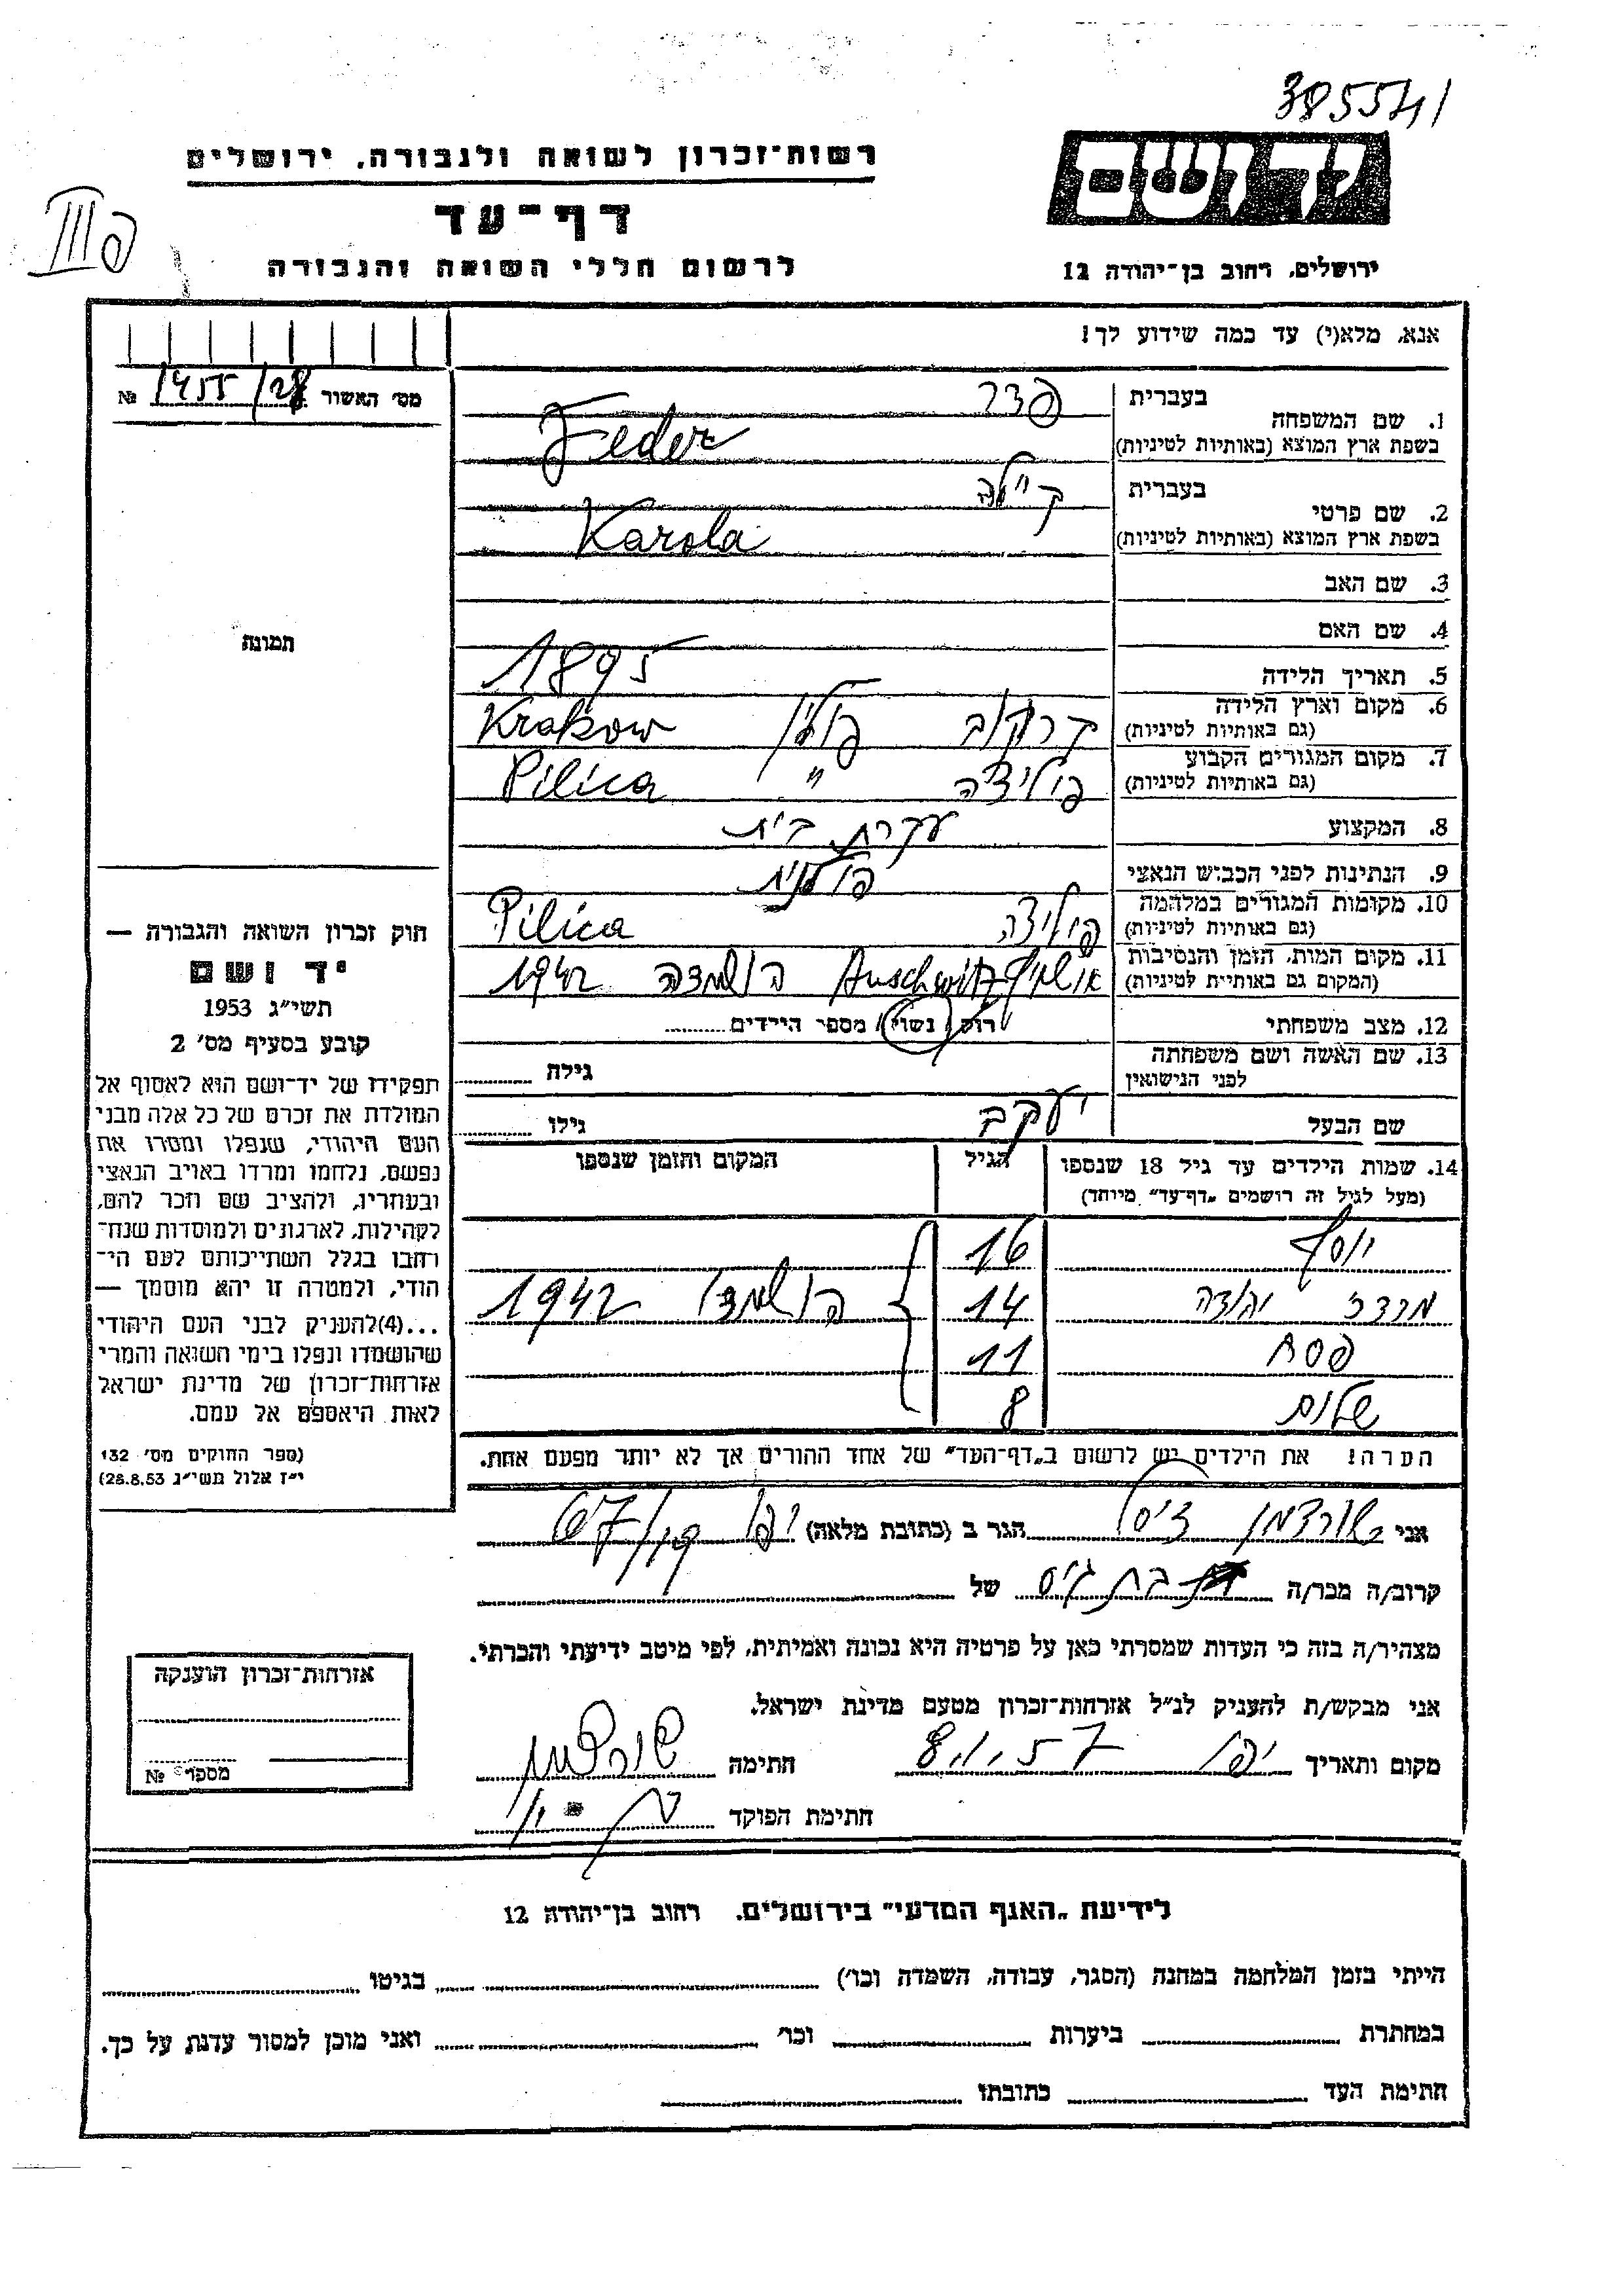 385541
יד ושם
רשות־זכרון לשואה ולגבורה, ירושלים
דף־עד
לרשום חללי השואה והגבורה
ירושלים, רחוב בן־יהודה 12
פ III
אנא, מלא(י) עד כמה שידוע לך!
מס׳ האשור 1455/28 №
1. שם המשפחה
בעברית פדר
בשפת ארץ המוצא (באותיות לטיניות) Feder
2. שם פרטי
בעברית קיילה
בשפת ארץ המוצא (באותיות לטיניות) Karola
3. שם האב
4. שם האם
5. תאריך הלידה 1895
6. מקום וארץ הלידה
(גם באותיות לטיניות) קרקוב פולין Krakow
7. מקום המגורים הקבוע
(גם באותיות לטיניות) פיליצה " Pilica
8. המקצוע עקרת בית
9. הנתינות לפני הכבוש הנאצי פולנית
10. מקומות המגורים במלחמה
(גם באותיות לטיניות) פיליצה Pilica
11. מקום המות, הזמן והנסיבות
(המקום גם באותיית לטיניות) Auschwitz הושמדה 1942
12. מצב משפחתי רוק / נשוי / מספר הילדים
13. שם האשה ושם משפחתה
לפני הנישואין גילה
שם הבעל יעקב גילו
14. שמות הילדים עד גיל 18 שנספו
(מעל לגיל זה רושמים „דף־עד" מיוחד)
הגיל
המקום והזמן שנספו
יוסף 16
מרדכי יהודה 14 הושמדו 1942
פסח 11
שלום 8
הערה! את הילדים יש לרשום ב„דף־העד" של אחד ההורים אך לא יותר מפעם אחת.
תמונה
חוק זכרון השואה והגבורה —
יד ושם
תשי״ג 1953
קובע בסעיף מס׳ 2
תפקידו של יד־ושם הוא לאסוף אל
המולדת את זכרם של כל אלה מבני
העם היהודי, שנפלו ומסרו את
נפשם, נלחמו ומרדו באויב הנאצי
ובעוזריו, ולהציב שם וזכר להם,
לקהילות, לארגונים ולמוסדות שנח־
רבו בגלל השתייכותם לעם הי־
הודי, ולמטרה זו יהא מוסמך —
...(4)להעניק לבני העם היהודי
שהושמדו ונפלו בימי השואה והמרי
אזרחות־זכרון של מדינת ישראל
לאות היאספם אל עמם.
(ספר החוקים מס׳ 132
י״ז אלול תשי״ג 28.8.53)
אני הגר ב (כתובת מלאה) יפו
קרוב/ה מכר/ה בת גיס של
מצהיר/ה בזה כי העדות שמסרתי כאן על פרטיה היא נכונה ואמיתית, לפי מיטב ידיעתי והכרתי.
אני מבקש/ת להעניק לנ״ל אזרחות־זכרון מטעם מדינת ישראל.
מקום ותאריך יפו חתימה
חתימת הפוקד
אזרחות־זכרון הוענקה
מספר №
לידיעת „האגף המדעי" בירושלים, רחוב בן־יהודה 12
הייתי בזמן המלחמה במחנה (הסגר, עבודה, השמדה וכו׳) בגיטו
במחתרת ביערות וכו׳ ואני מוכן למסור עדות על כך.
חתימת העד כתובתו